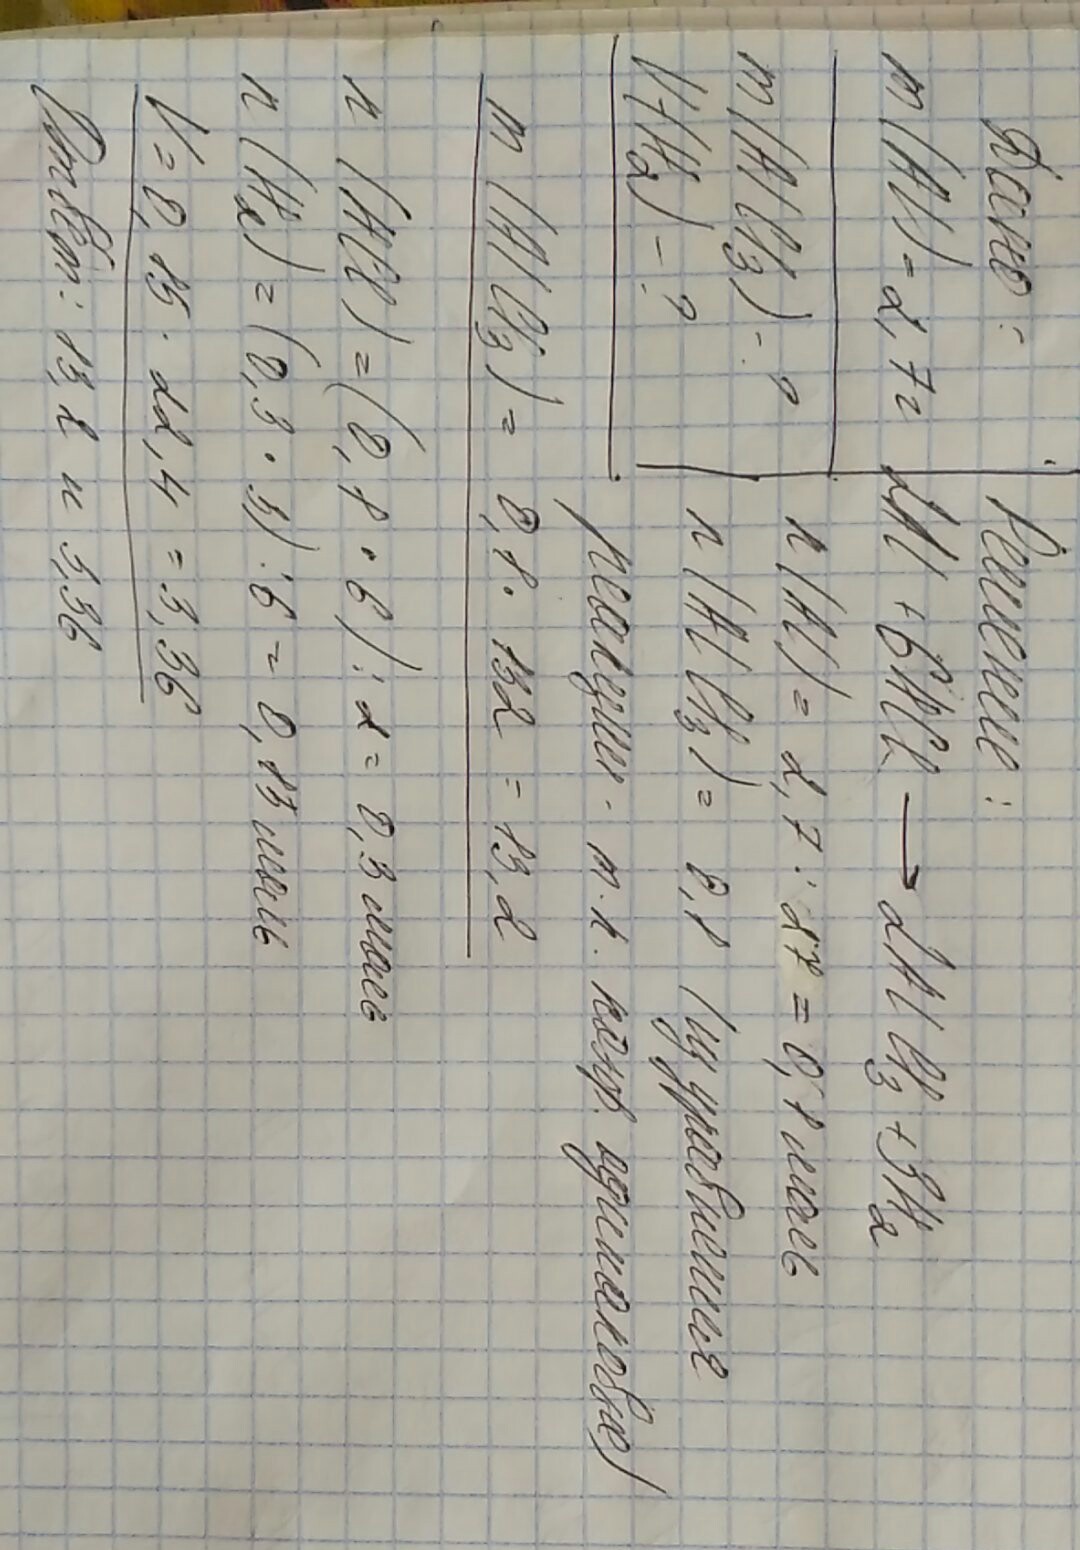 Дано:
m(Al)=2,7г
m(AlCl3)-?
V(H2)-?
Решение:
2Al+6HCl→2AlCl3+3H2
n(Al)=2,7:27=0,1моль
n(AlCl3)=0,1 (из уравнения
реакции. т.к. коэф. одинаковые)
m(AlCl3)=0,1·132=13,2
n(HCl)=(0,1·6):2=0,3моль
n(H2)=(0,3·3):6=0,15моль
V=0,15·22,4=3,36
Ответ: 13,2 и 3,36